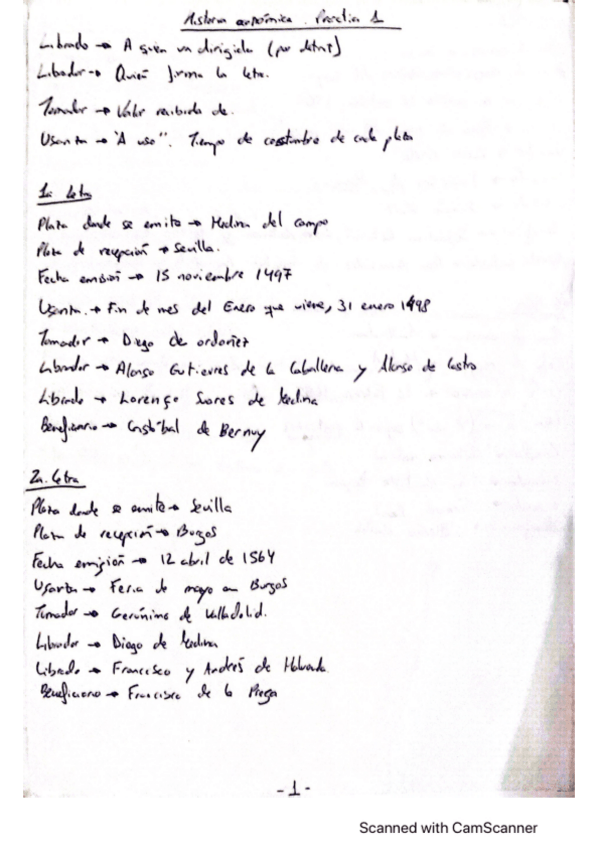 Historia económica. Practica 1
Librado → A quien va dirigida (por detrás)
Librador → Quien firma la letra.
Tomador → Valor recibido de.
Usanza → "A uso". Tiempo de costumbre de cada plaza
1a letra
Plaza donde se emite → Medina del campo
Plaza de recepción → Sevilla.
Fecha emisión → 15 noviembre 1497
Usanza. → Fin de mes del Enero que viene, 31 enero 1498
Tomador → Diego de ordoñez
Librador → Alonso Gutierres de la Caballeria y Alonso de Castro
Librado → Lorenço Suares de Medina
Beneficiario → Cristóbal de Bernuy
2a letra
Plaza donde se emite → Sevilla
Plaza de recepción → Burgos
Fecha emisión → 12 abril de 1564
Usanza → Feria de mayo en Burgos
Tomador → Gerónimo de Valladolid.
Librador → Diego de Medina
Librado → Francisco y Andrés de
Beneficiario → Francisco de la Presa
- 1 -
Scanned with CamScanner